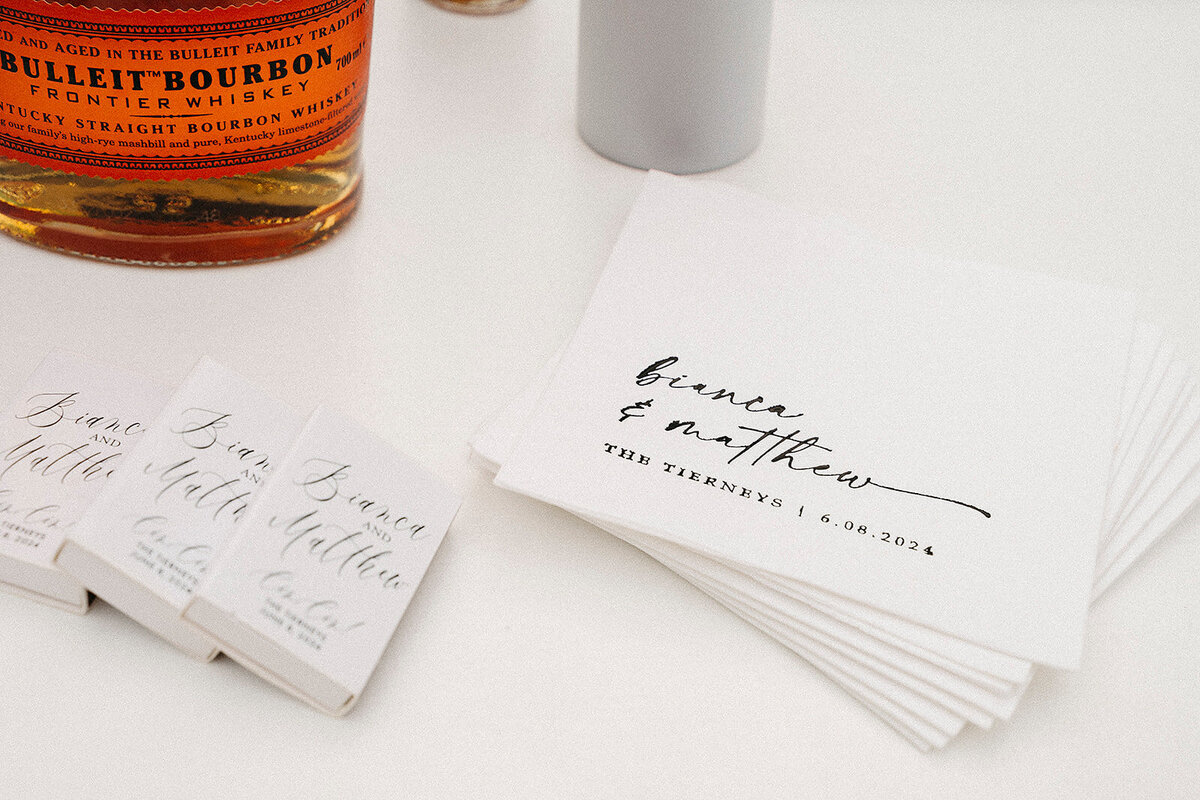 ED AND AGED IN THE BULLEIT FAMILY TRADITION
BULLEIT™ BOURBON 700 ml
FRONTIER WHISKEY
NTUCKY STRAIGHT BOURBON WHISKEY
g our family's high-rye mashbill and pure, Kentucky limestone-filtered
bianca
& matthew
THE TIERNEYS | 6.08.2024
Bianc
AND
Matthe
TIERNEYS
8, 2024
Bian
AN
Matth
THE TIERNEYS
JUNE 8, 2024
Bianca
AND
Matthew
THE TIERNEYS
JUNE 8, 2024